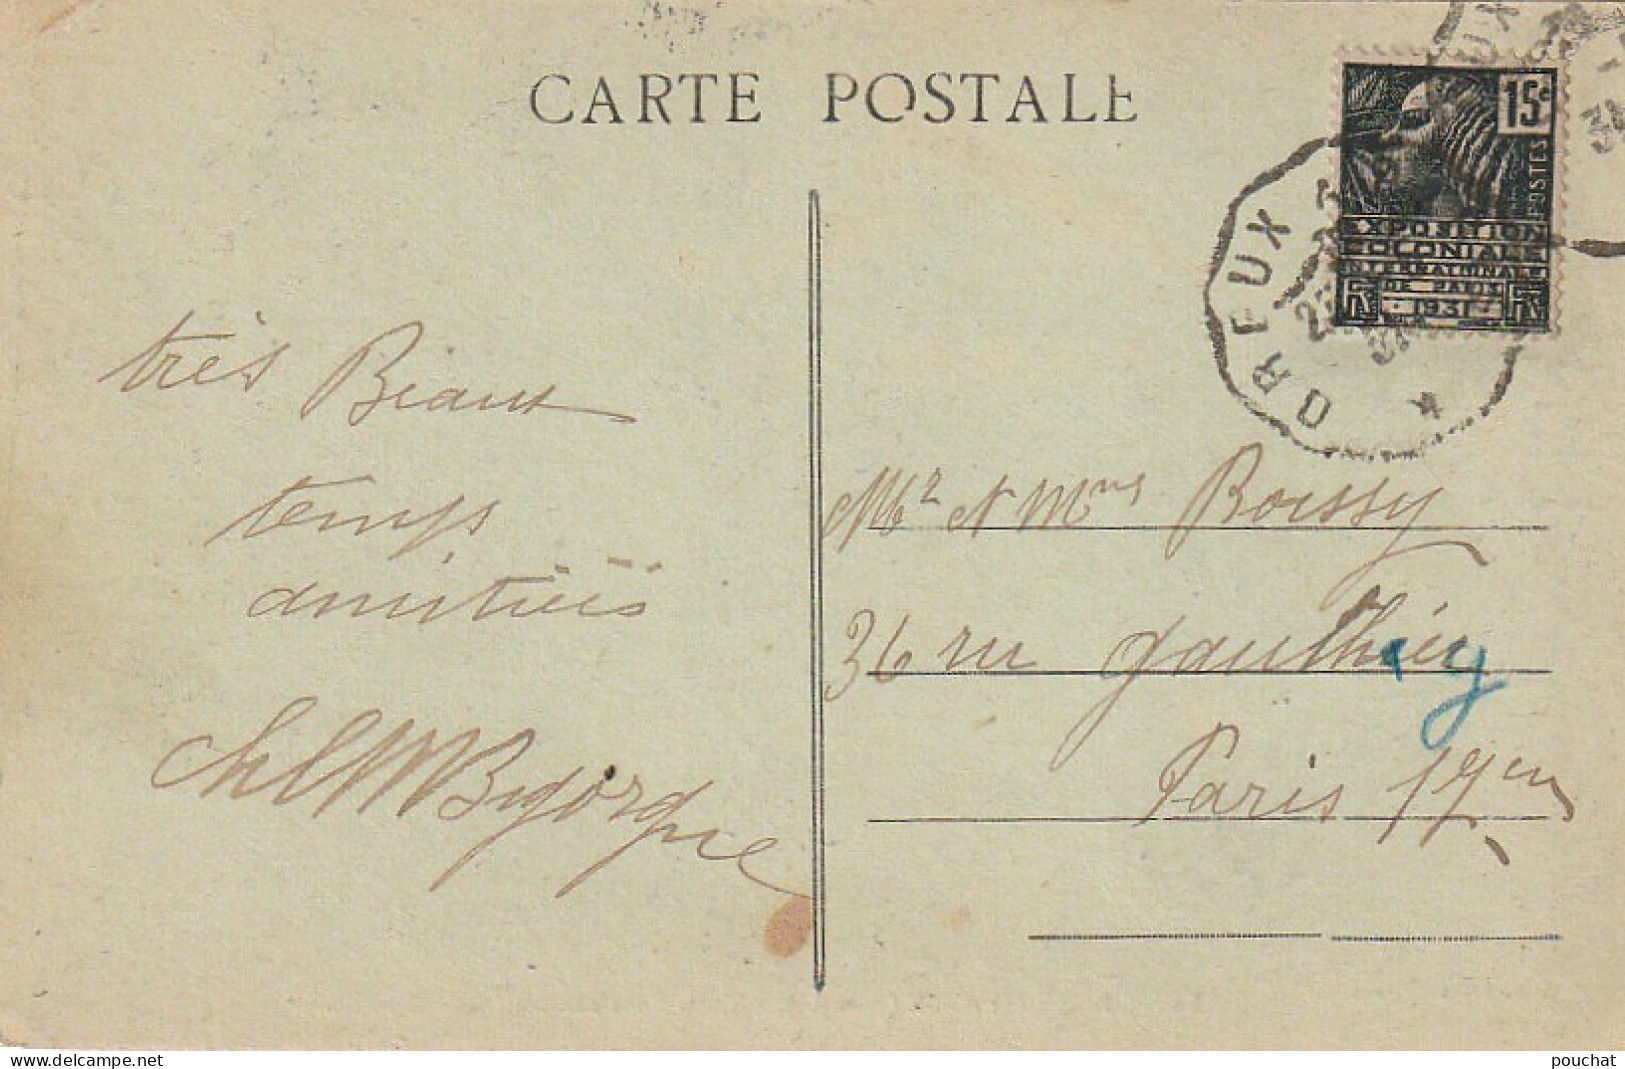 CARTE POSTALE
15c
POSTES
EXPOSITION
COLONIALE
INTERNATIONALE
DE PARIS
1931
DREUX
très Beaux
temps
amitiés
Bigorgne
Mr & Mme Boissy
36 rue Gauthey
Paris 17em
pouchat